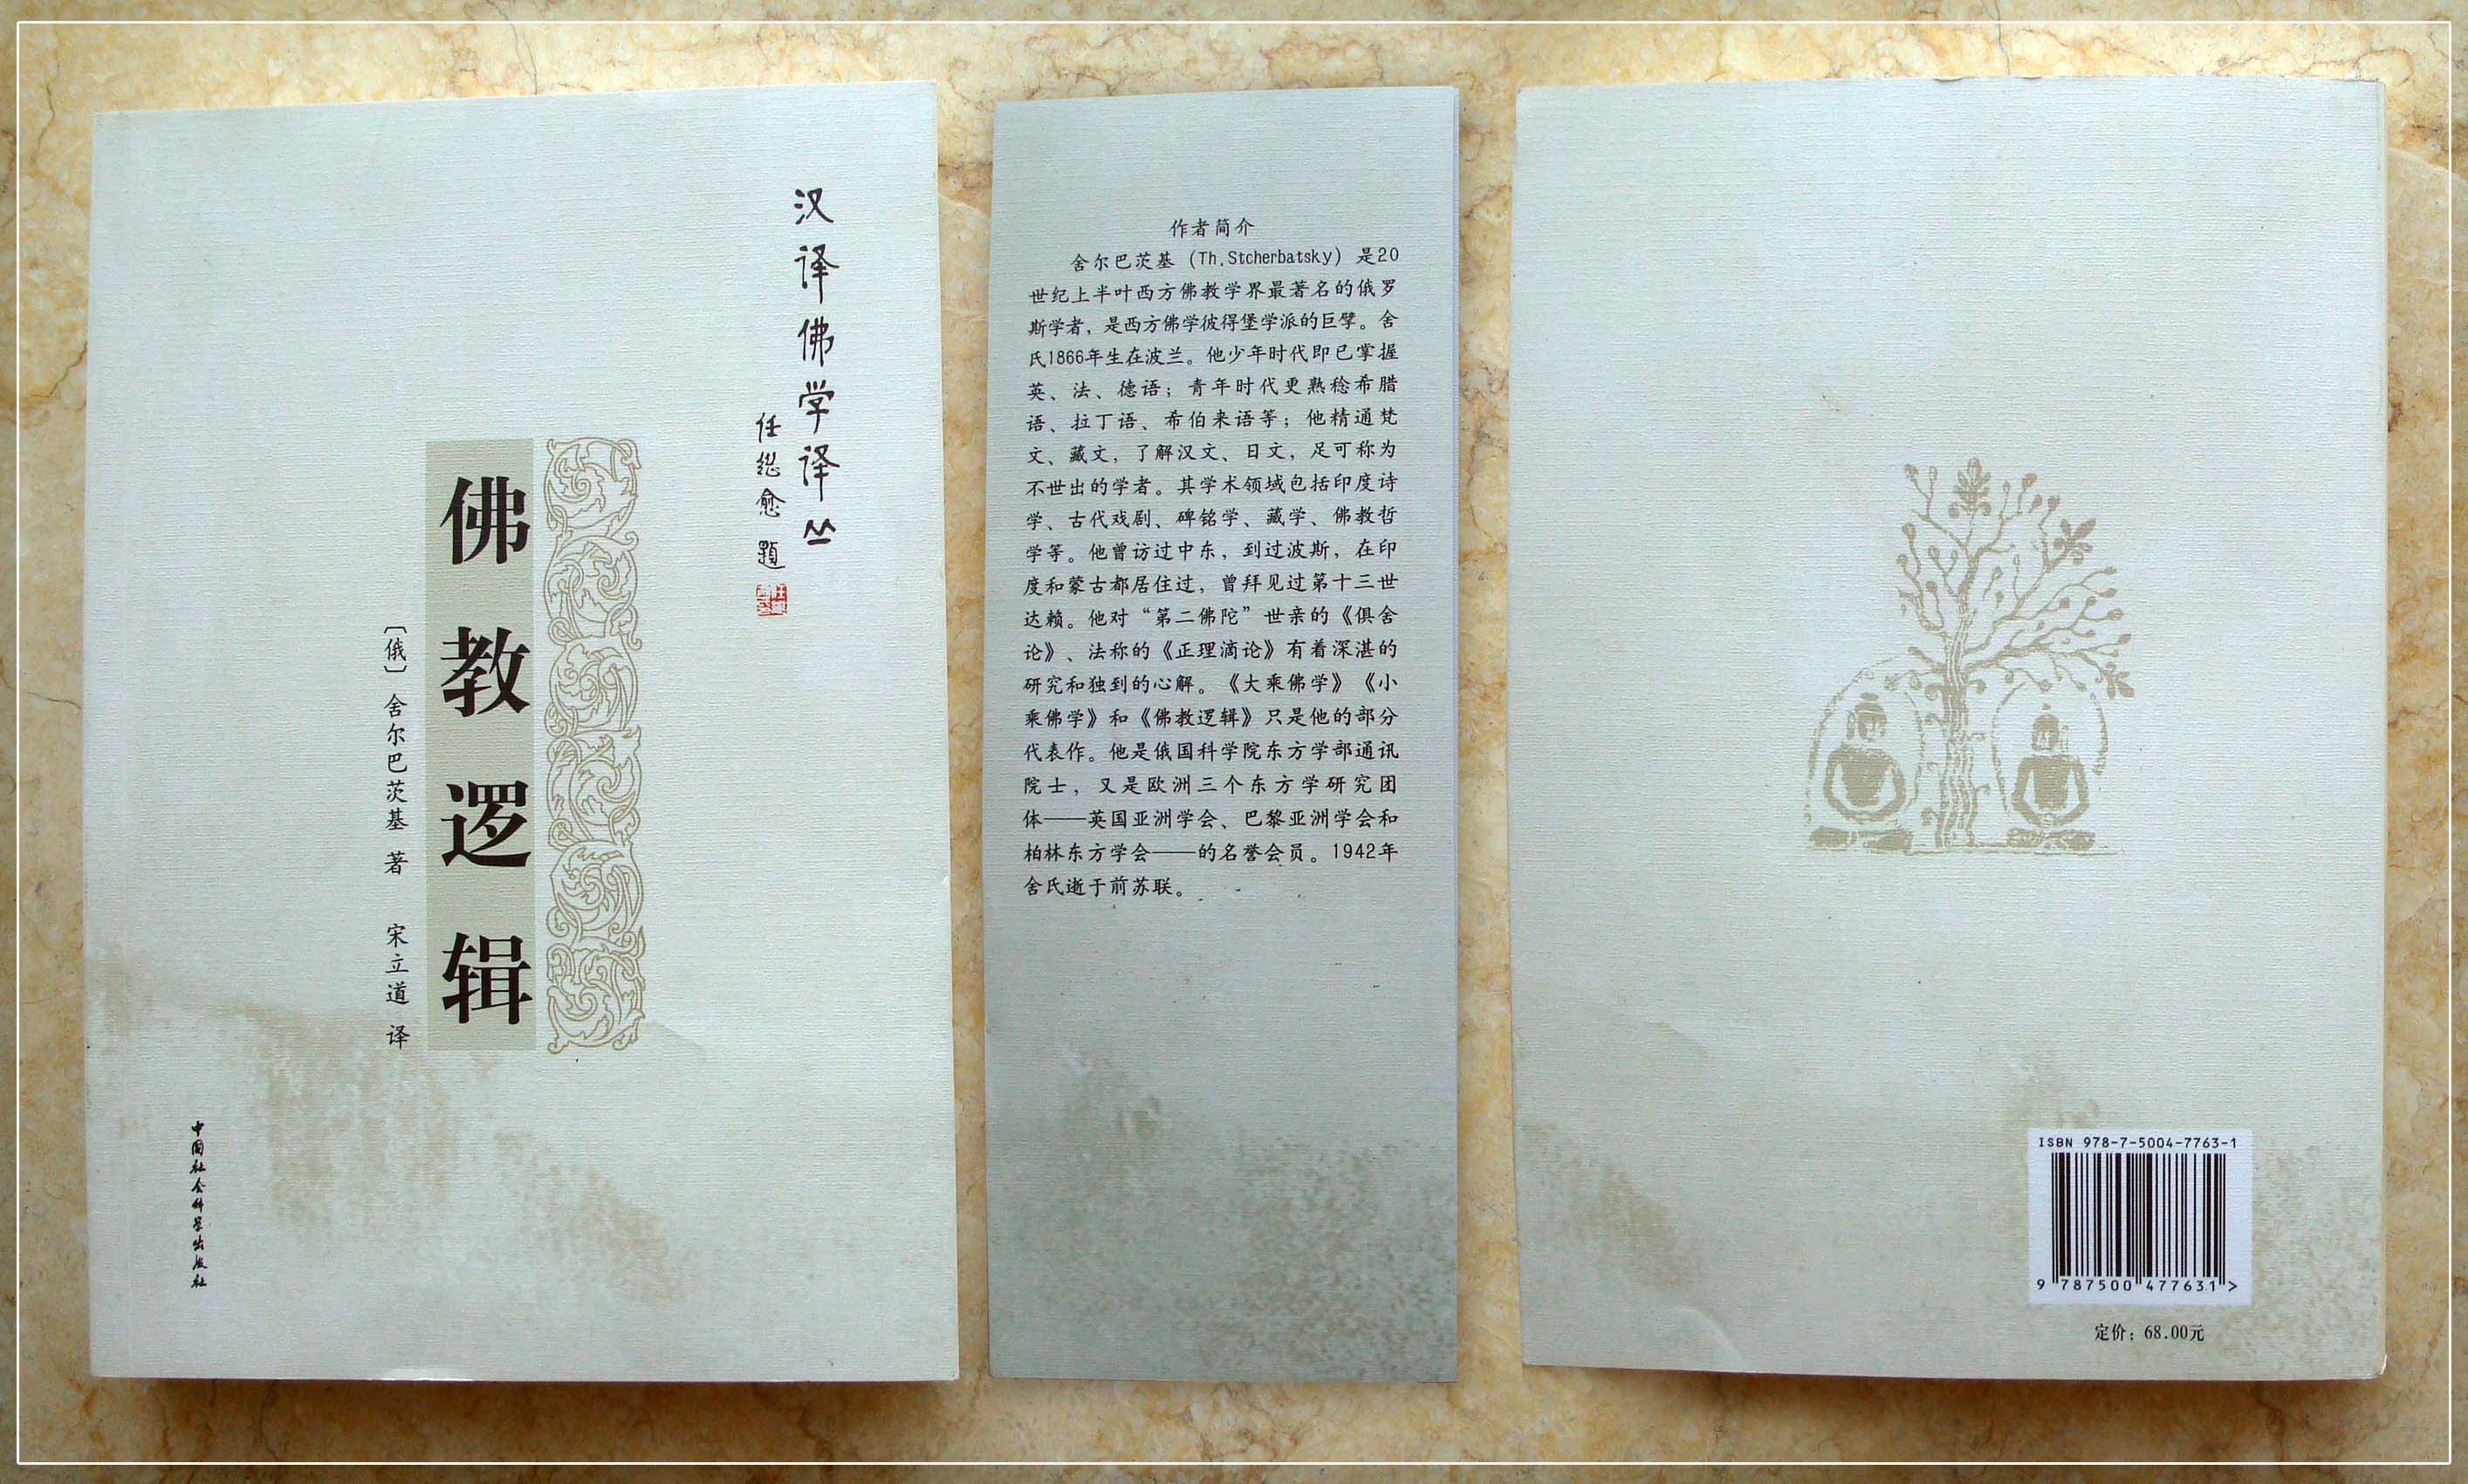 汉译佛学译丛
任继愈 题
佛教逻辑
〔俄〕舍尔巴茨基 著 宋立道 译
中国社会科学出版社
作者简介
舍尔巴茨基（Th.Stcherbatsky）是20
世纪上半叶西方佛教学界最著名的俄罗
斯学者，是西方佛学彼得堡学派的巨擘。舍
氏1866年生在波兰。他少年时代即已掌握
英、法、德语；青年时代更熟稔希腊
语、拉丁语、希伯来语等；他精通梵
文、藏文，了解汉文、日文，足可称为
不世出的学者。其学术领域包括印度诗
学、古代戏剧、碑铭学、藏学、佛教哲
学等。他曾访过中东，到过波斯，在印
度和蒙古都居住过，曾拜见过第十三世
达赖。他对“第二佛陀”世亲的《俱舍
论》、法称的《正理滴论》有着深湛的
研究和独到的心解。《大乘佛学》《小
乘佛学》和《佛教逻辑》只是他的部分
代表作。他是俄国科学院东方学部通讯
院士，又是欧洲三个东方学研究团
体——英国亚洲学会、巴黎亚洲学会和
柏林东方学会——的名誉会员。1942年
舍氏逝于前苏联。
ISBN 978-7-5004-7763-1
9 787500 477631 >
定价：68.00元